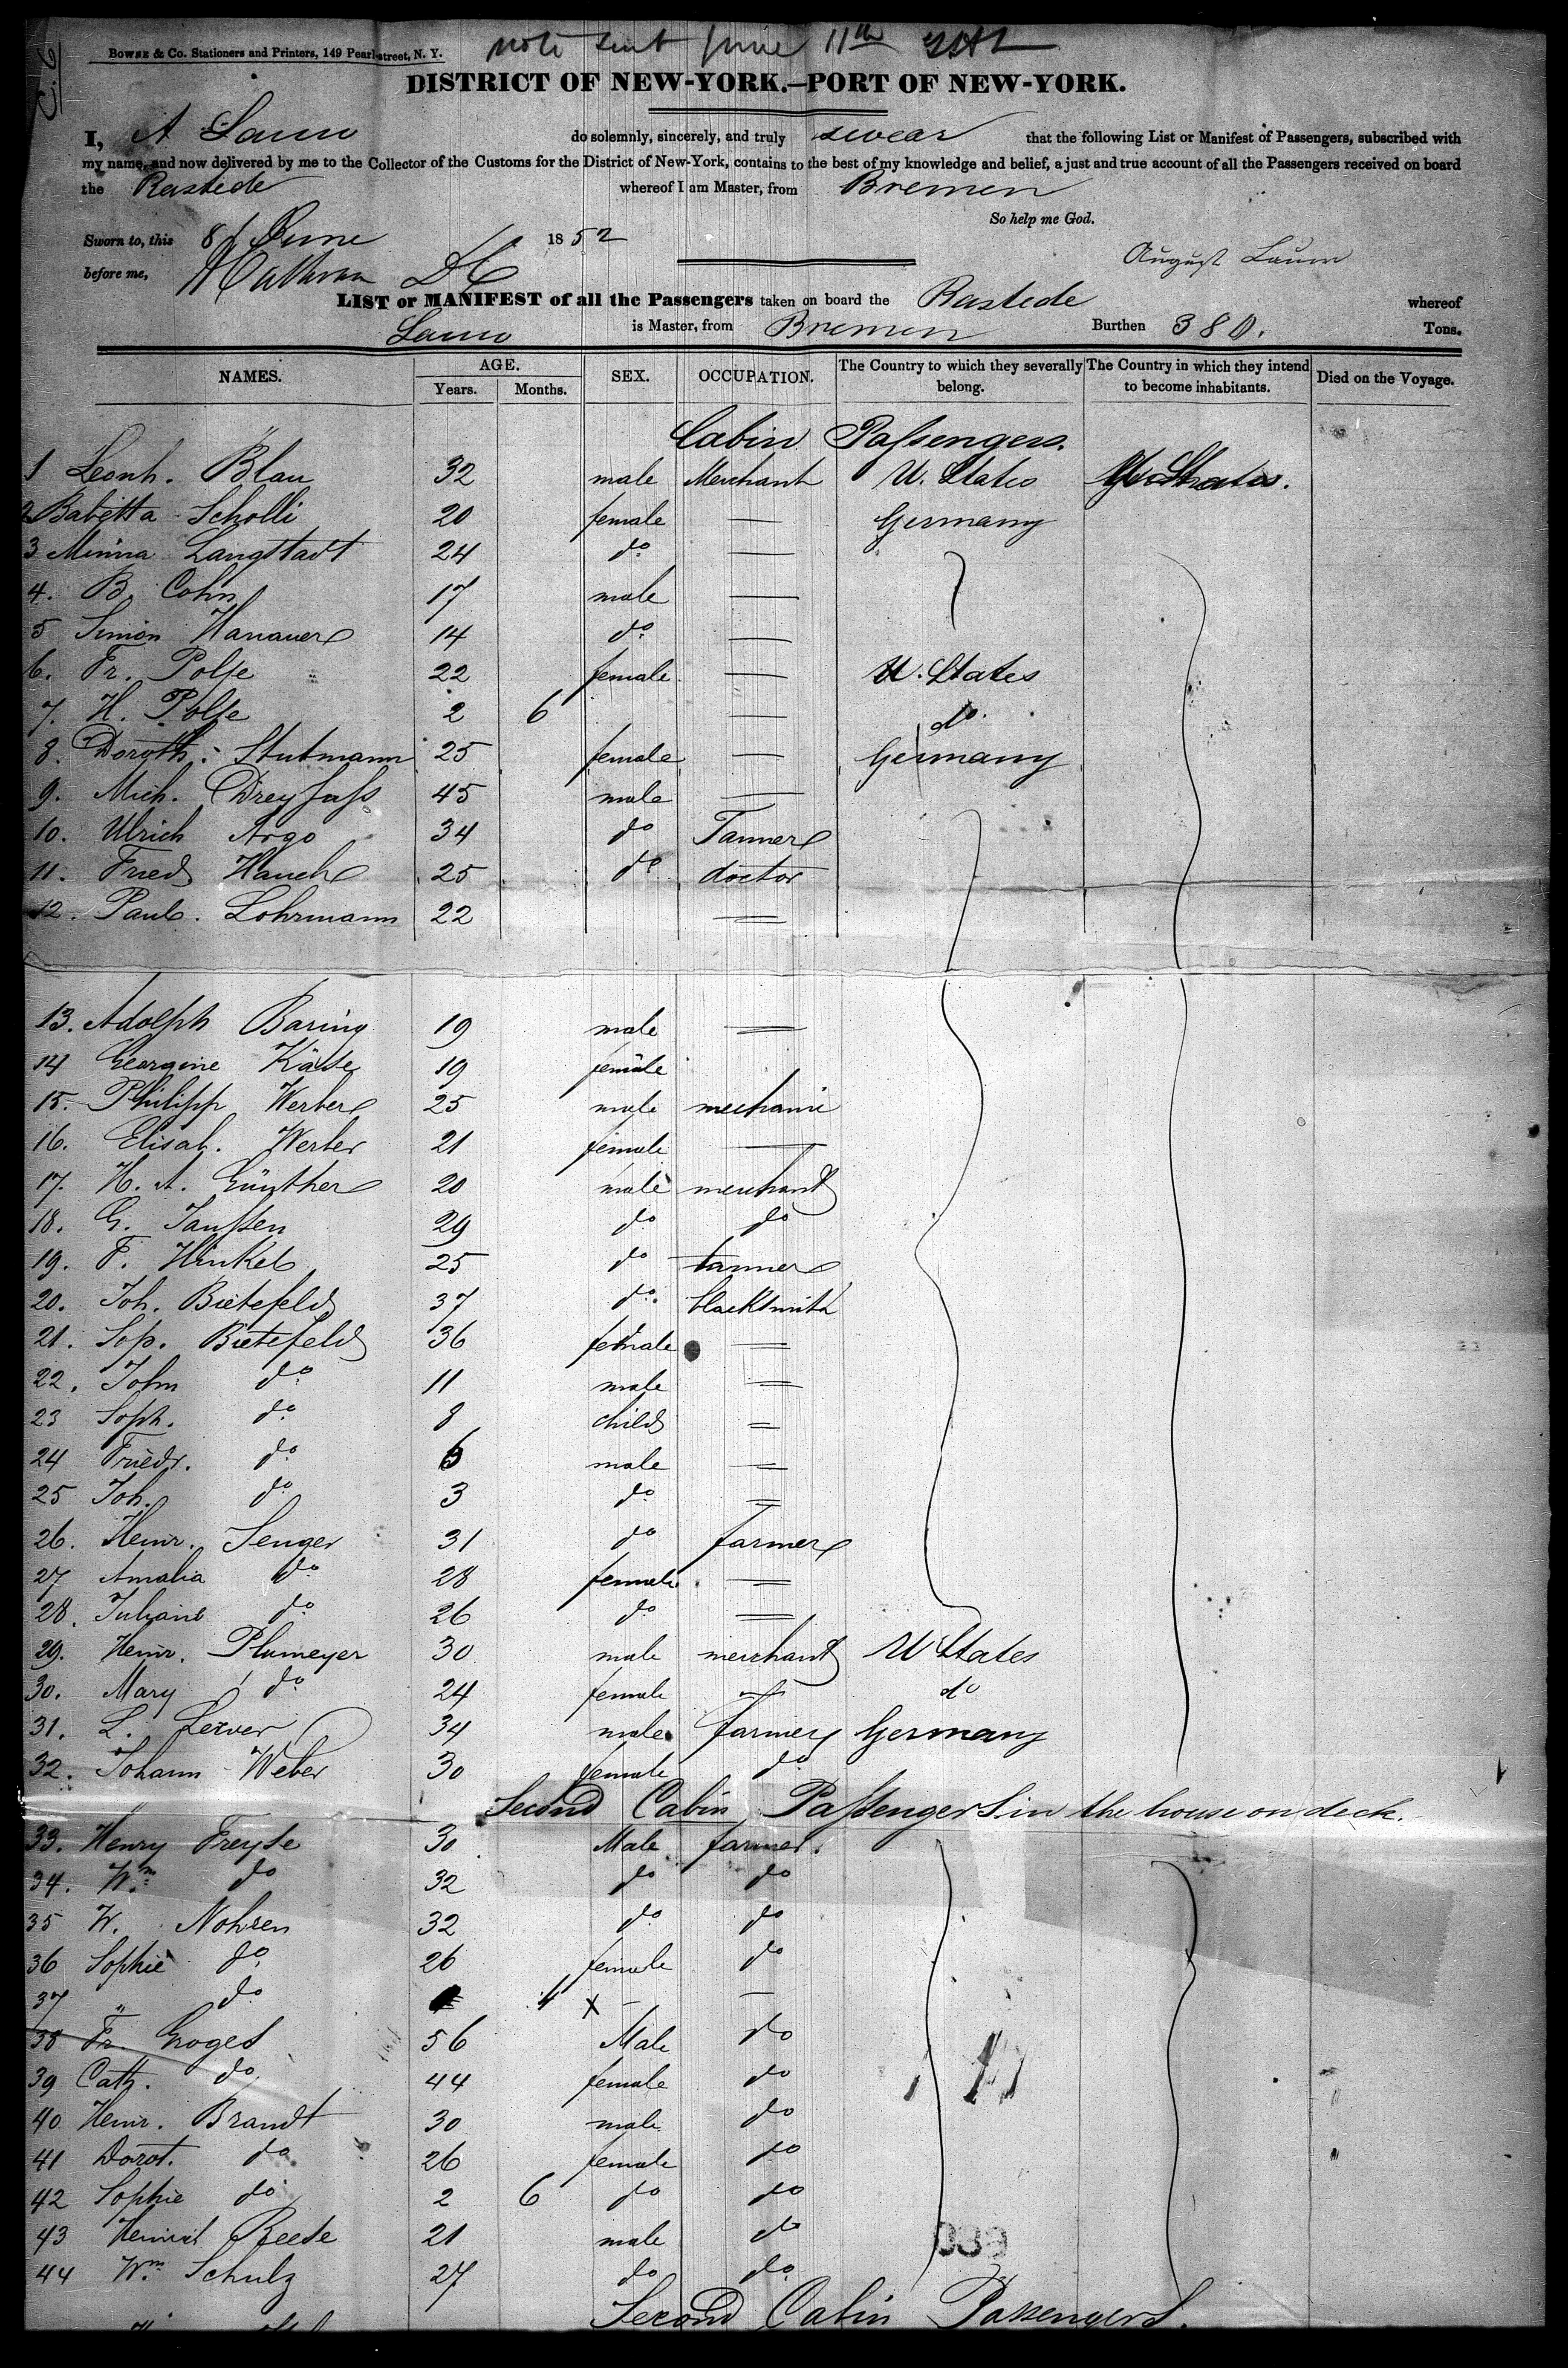 BOWNE & Co. Stationers and Printers, 149 Pearl-street, N. Y.
note sent June 11th
DISTRICT OF NEW-YORK.—PORT OF NEW-YORK.
I, A Laun do solemnly, sincerely, and truly swear that the following List or Manifest of Passengers, subscribed with
my name, and now delivered by me to the Collector of the Customs for the District of New-York, contains to the best of my knowledge and belief, a just and true account of all the Passengers received on board
the Rastede whereof I am Master, from Bremen
So help me God.
Sworn to, this 8 June 1852
August Laun
before me,
LIST or MANIFEST of all the Passengers taken on board the Rastede whereof
Laun is Master, from Bremen Burthen 380. Tons.
NAMES. AGE. Years. Months. SEX. OCCUPATION. The Country to which they severally belong. The Country in which they intend to become inhabitants. Died on the Voyage.
Cabin Passengers.
1 Leonh. Blau 32 male Merchant U. States U. States.
2 Babetta Scholli 20 female — Germany
3 Minna Langstadt 24 do —
4. B. Cohn 17 male —
5 Simon Hanauer 14 do —
6. Fr. Polse 22 female — U. States
7. H. Polse 2 6 — do.
8. Doroth: Stutmann 25 female — Germany
9. Mich. Dreyfass 45 male —
10. Ulrich Argo 34 do Tanner
11. Fried Hauch 25 do doctor
12. Paul. Lohrmann 22 —
13. Adolph Baring 19 male —
14 Georgine Käse 19 female
15. Philipp Werber 25 male mechanic
16. Elisab. Werber 21 female —
17. H. A. Günther 20 male merchant
18. G. Janssen 29 do do
19. F. Hinkel 25 do tanner
20. Joh. Bietefeld 37 do. blacksmith
21. Sop. Bietefeld 36 female —
22. John do 11 male —
23 Soph. do 8 child —
24 Friedr. do 6 male —
25 Joh. do 3 do —
26. Heinr. Senger 31 do farmer
27 Amalia do 28 female —
28. Juliane do 26 do —
29. Heinr. Plumeyer 30 male merchant U States
30. Mary do 24 female — do
31. L. Lexver 34 male farmer Germany
32. Johann Weber 30 female do
Second Cabin Passengers in the house on deck.
33. Henry Freyse 30 Male farmer.
34. Wm do 32 do do
35 W. Nohsen 32 do do
36 Sophie do 26 female do
37 " do 4 x — —
38 Fr. Groges 56 Male do
39 Cath. do 44 female do
40 Heinr. Brandt 30 male do
41 Dorot. do 26 female do
42 Sophie do 2 6 do do
43 Heinrich Reese 21 male do
44 Wm. Schulz 27 do do
Second Cabin Passengers.